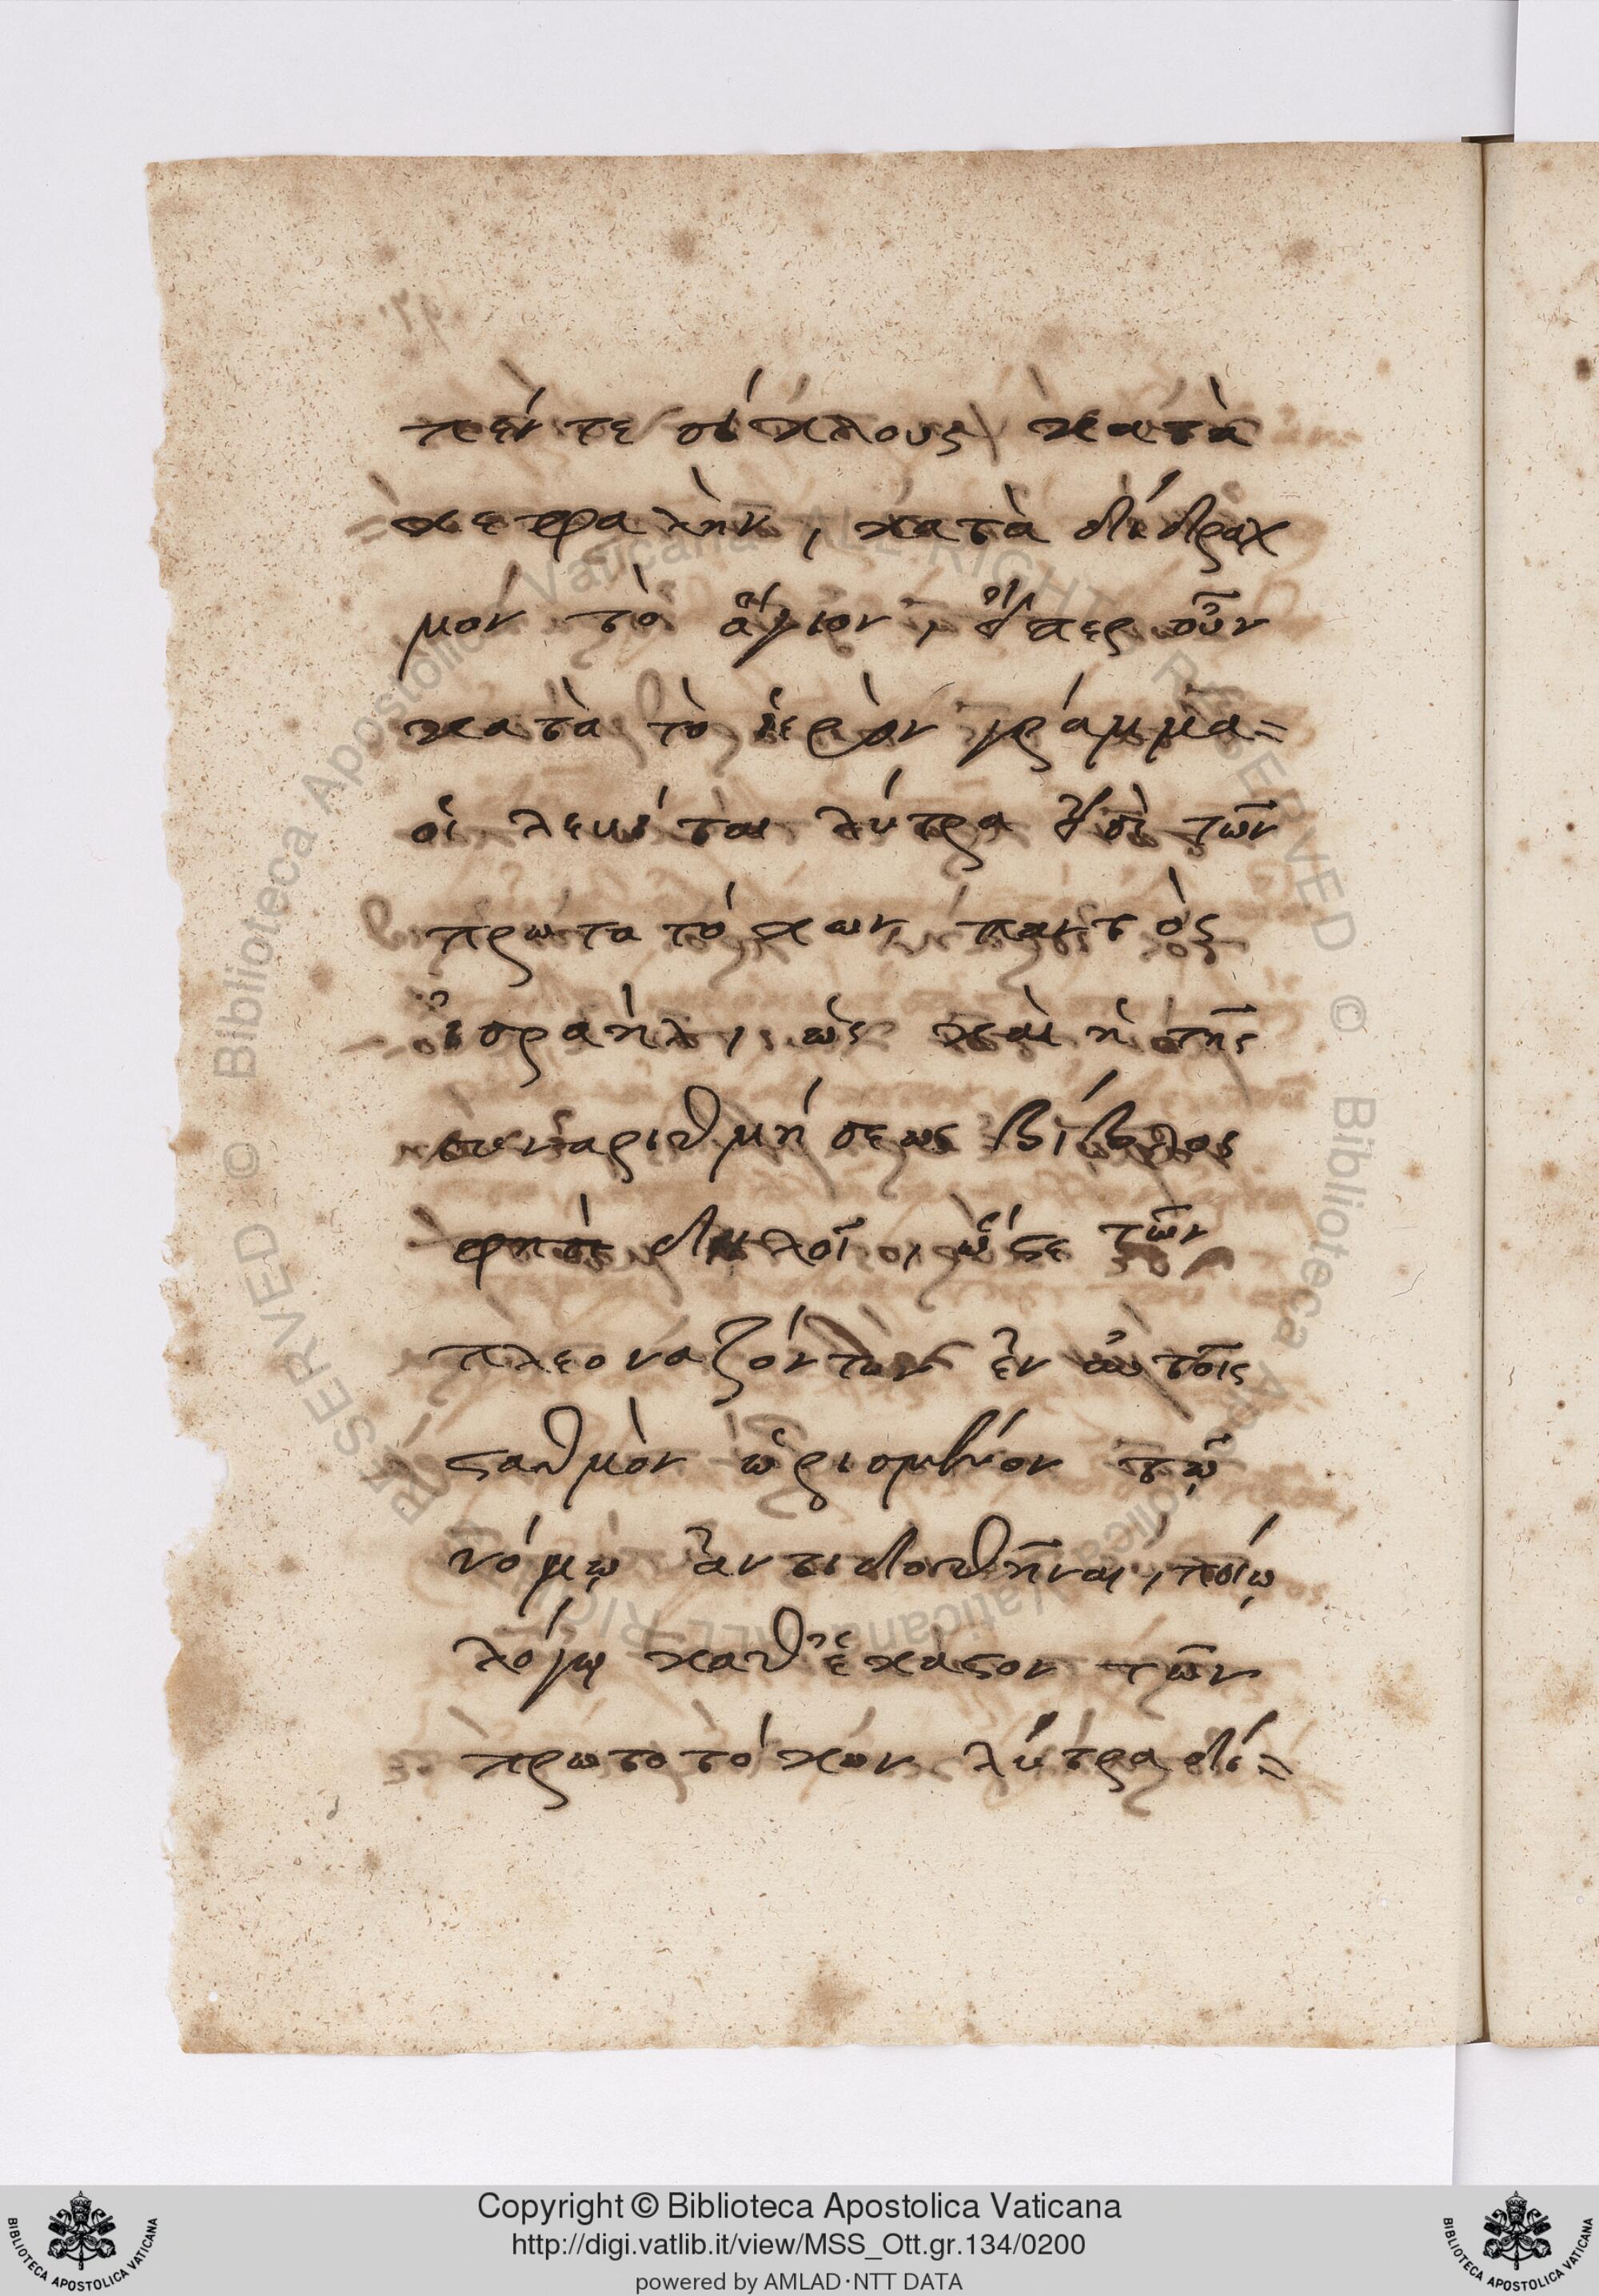 πέντε σίκλους κατὰ
κεφαλὴν, κατὰ δίδραχ
μον τὸ ἅγιον, εἴπερ οὖν
κατὰ τὸ ἱερὸν γράμμα=
οἱ λευίται λύτρα εἰσὶ τῶν
πρωτατόκων παντὸς
ἰσραήλ, ὡς καὶ ἡ τῆς
συναριθμήσεως βίβλος
φησὶ δηλοῖ, ὥστε τῶν
πλεοναζόντων ἐν αὐτοῖς
σταθμὸν ὡρισμένον τῷ
νόμῳ ἀντιδοθῆναι, ποίῳ
λόγῳ καθ' ἑκάστον τῶν
πρωτοτόκων λύτρα δί=
Copyright © Biblioteca Apostolica Vaticana
http://digi.vatlib.it/view/MSS_Ott.gr.134/0200
powered by AMLAD·NTT DATA
BIBLIOTECA APOSTOLICA VATICANA
BIBLIOTECA APOSTOLICA VATICANA